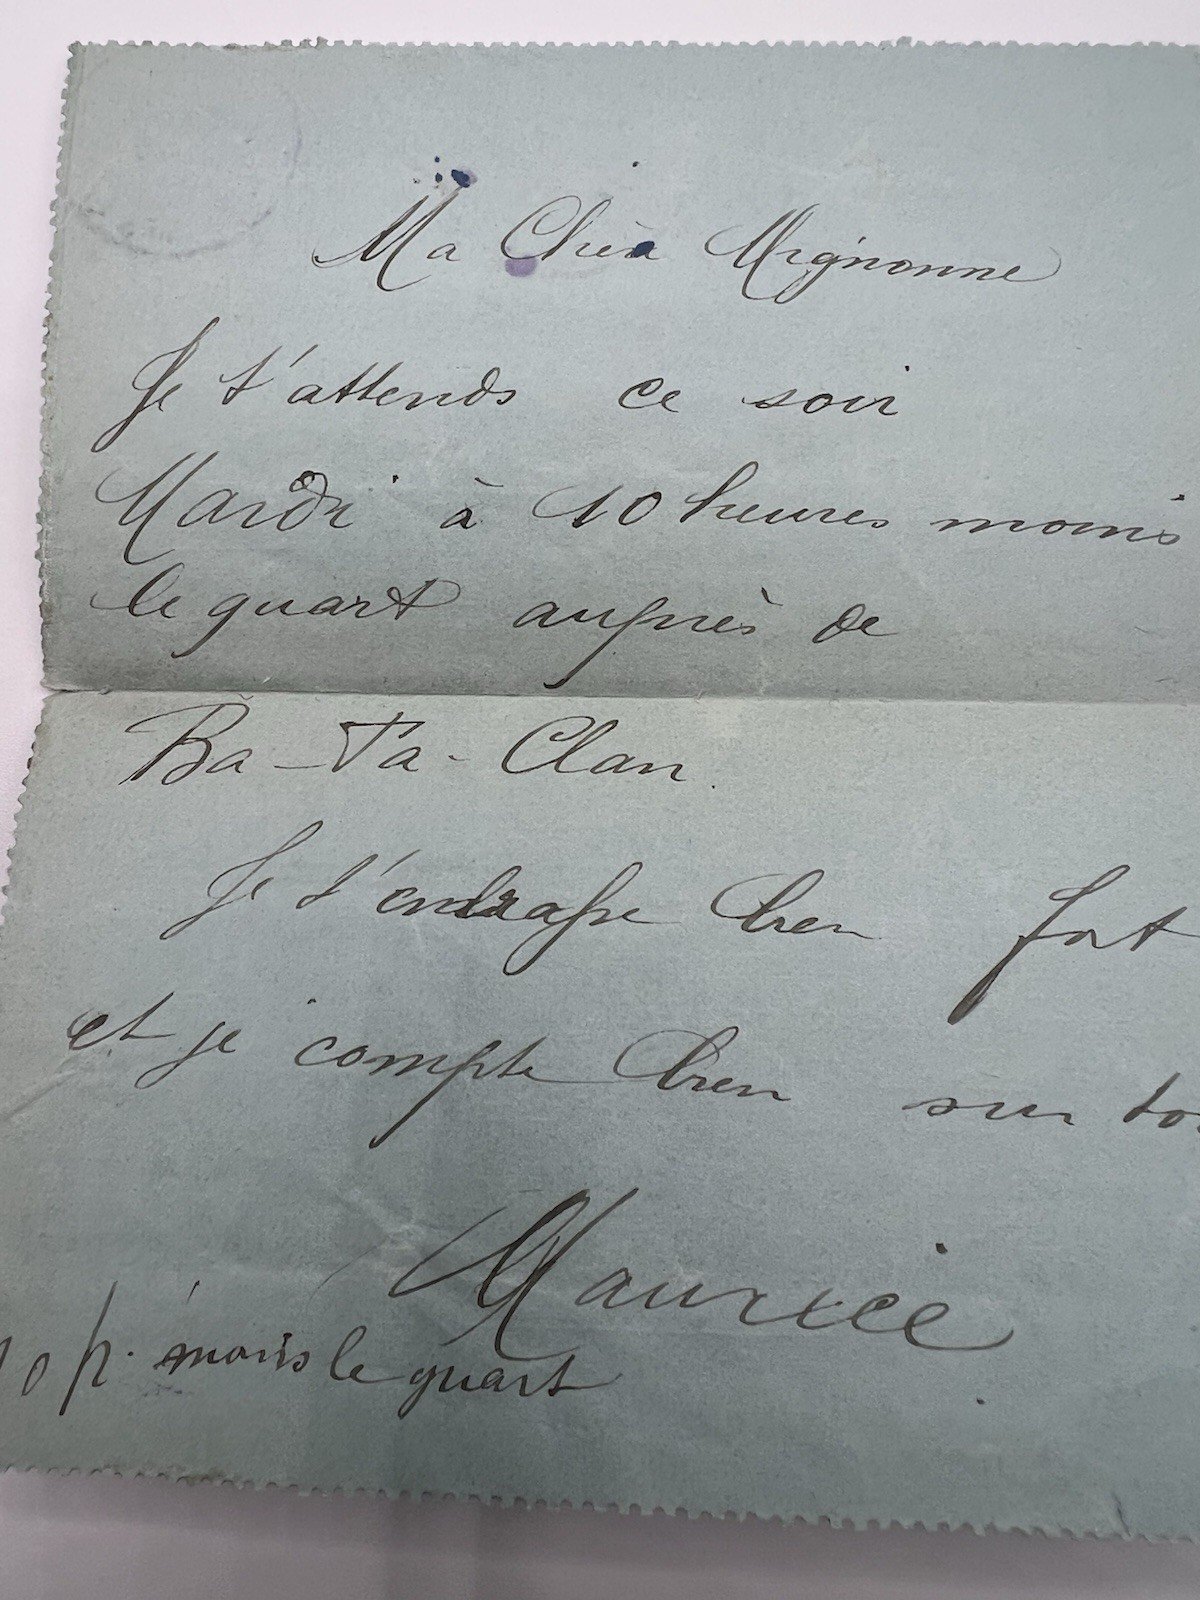 Ma Chère Mignonne
Je t'attends ce soir
Mardi à 10 heures moins
le quart auprès de
Ba-Ta-Clan.
Je t'embrasse bien fort
et je compte bien sur to
Maurice
10 h. moins le quart